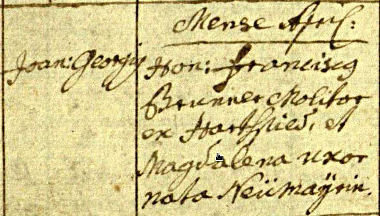 Mense Apris:
Joan: Georgiꝰ
Hon: Franciscꝰ
Brunner Molitor
ex Harthried, et
Magdalena uxor
nata Neümaÿrin.